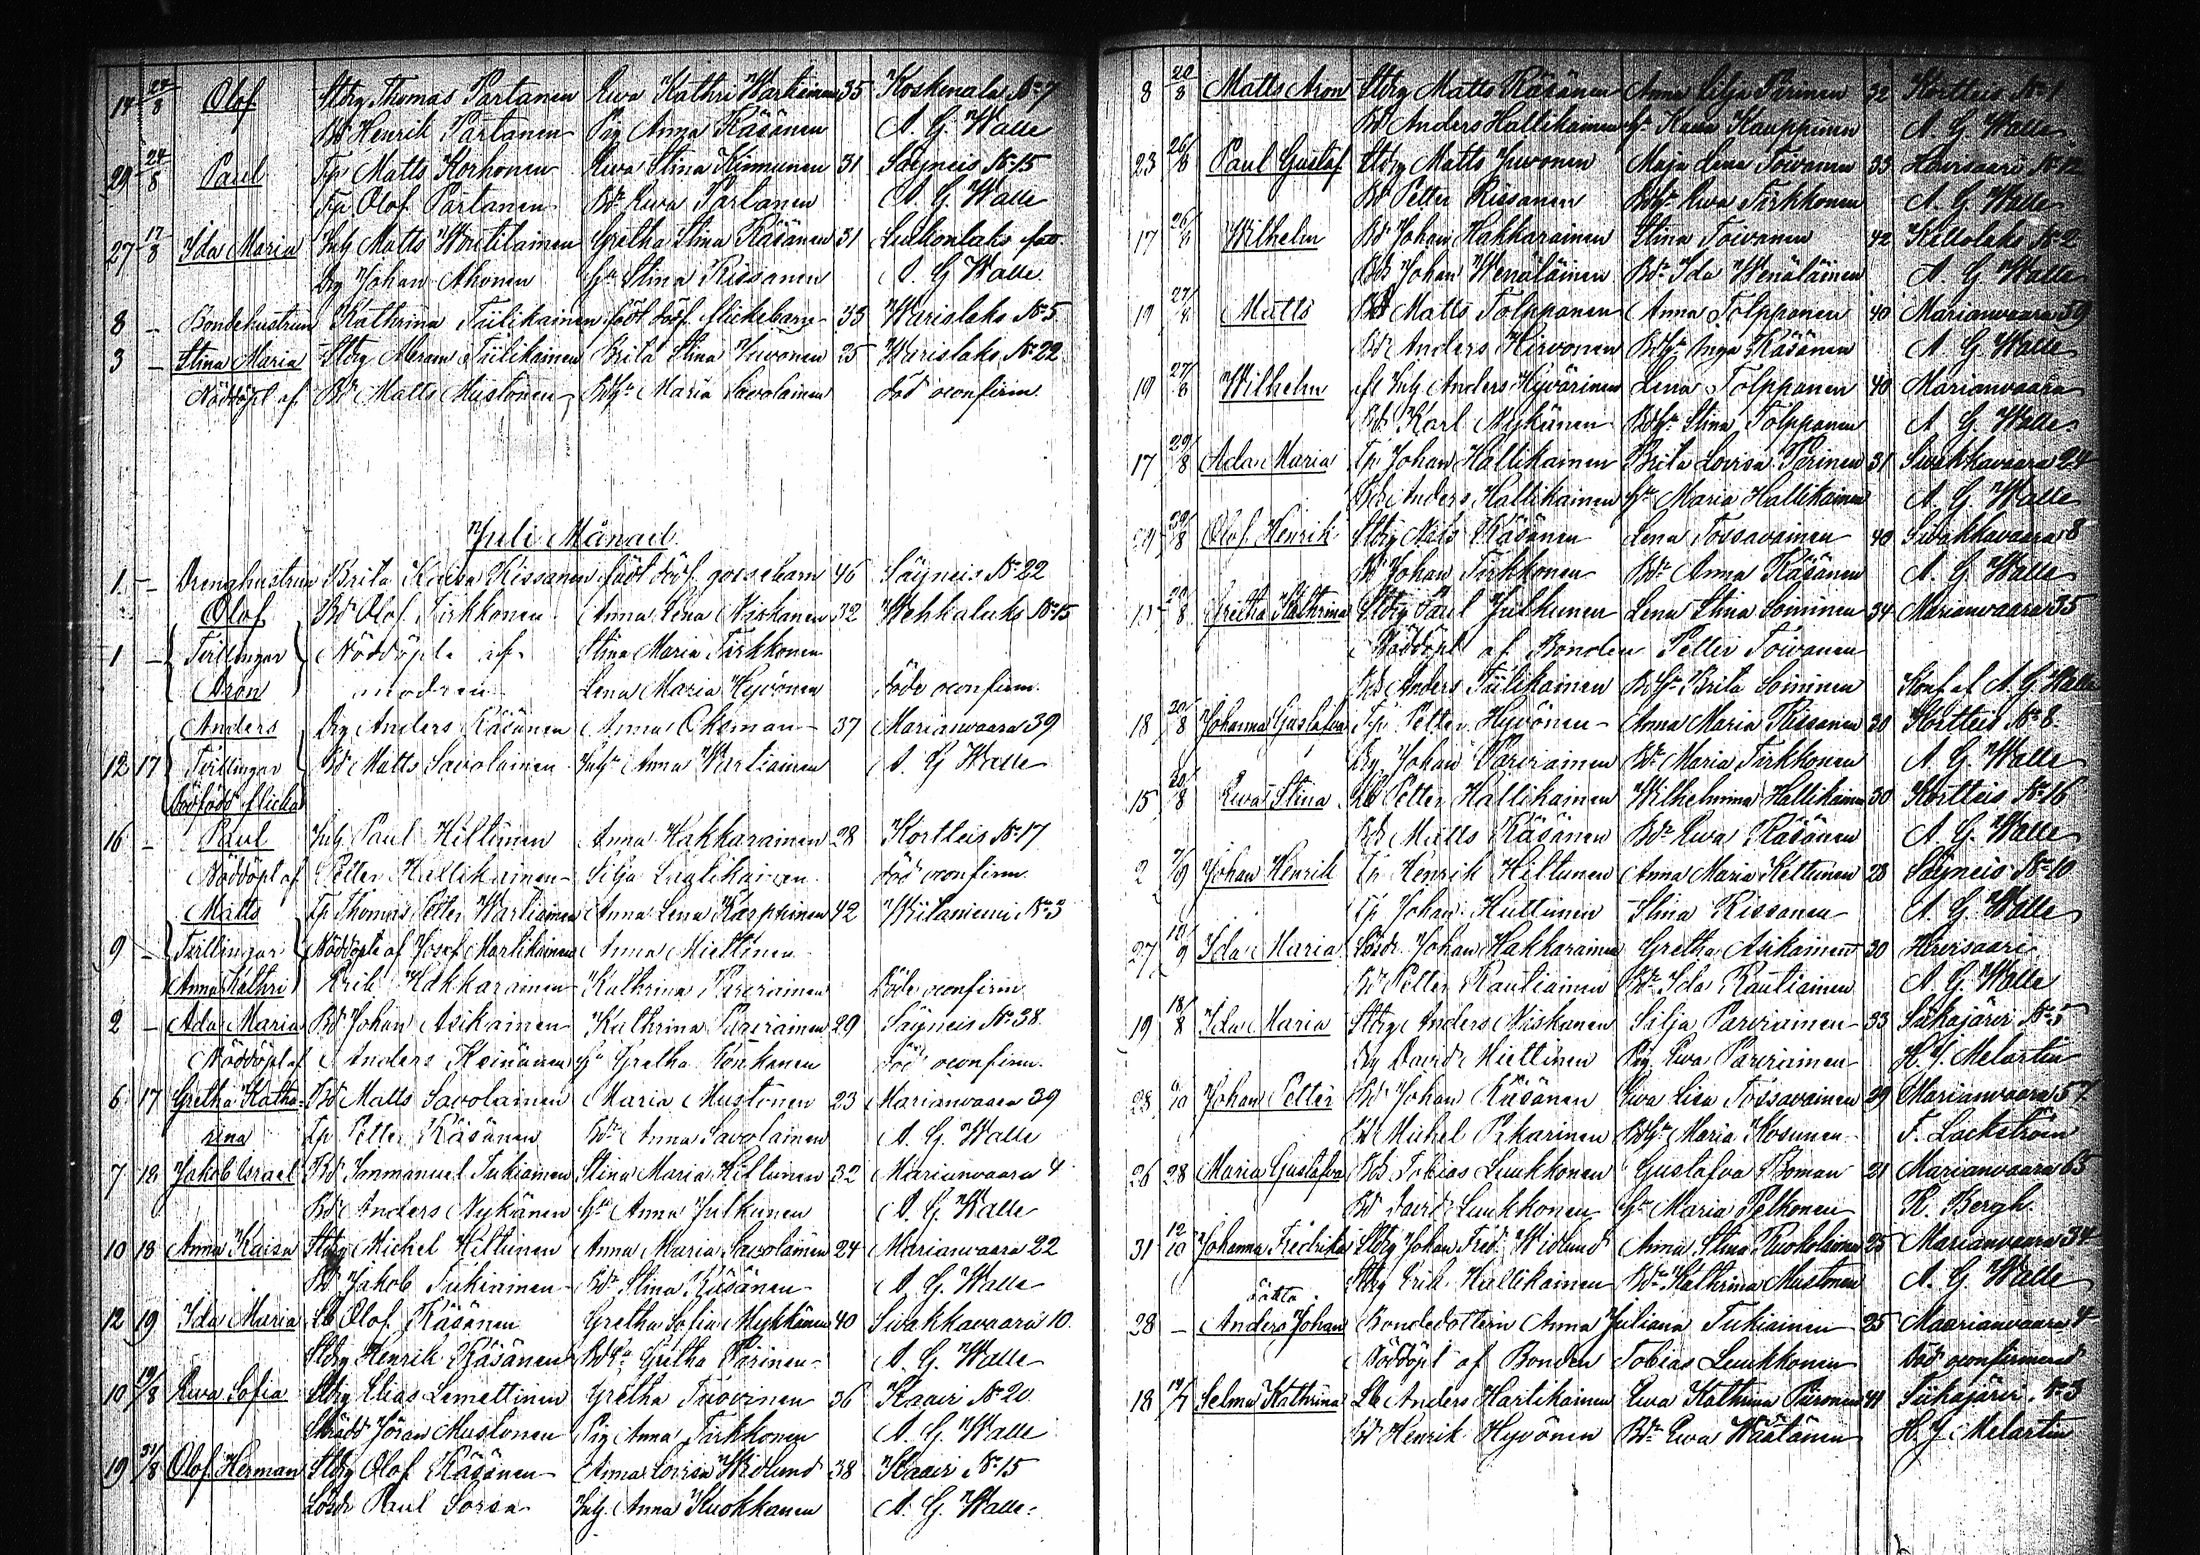 14 24/8 Olof Stdrg Thomas Partanen Ewa Kathri Wartiainen 35 Koskenala No 7
Bd Henrik Partanen Pig Anna Räsänen A. G. Walle
29 24/8 Paul Tp Matts Korhonen Ewa Stina Kinnunen 31 Säyneis No 15
Tp Olof Partanen Bdr Ewa Partanen A. G. Walle
27 17/8 Ida Maria Inh Matts Woutilainen Gretha Stina Räsänen 31 Luikonlaks
Drg Johan Ahonen Ha Stina Rissanen A. G Walle
8 – Bondehustrun Kathrina Tiilikainen födt död flickebarn 33 Warislaks No 5
3 – Stina Maria Stdrg Tiilikainen Brita Stina Juvonen 25 Warislaks No 22
Nöddöpt af Bd Matts Mustonen Maria Savolainen död oconfirm.
Juli Månad
1 – Drenghustrun Brita Kaisa Rissanen födt död gossebarn 46 Säyneis No 22
Olof Bd Olof Tirkkonen Anna Lena Niskanen 32 Wehkalaks No 15
1 – Tvillingar Nöddöpte af Stina Maria Tirkkonen
Aron modren Lena Maria Hyvönen döde oconfirm.
Anders Drg Anders Räsänen Anna Oksman 37 Marianvaara 39
12 17 Tvillingar Bd Matts Savolainen Anna Wartiainen A. G Walle
Dödfödd flicka
16 – Paul Inh Paul Hiltunen Anna Hakkarainen 28 Kortteis No 17
Nöddöpt af Petter Hallikainen Silja död oconfirm.
Matts Tp Thomas Petter Wartiainen Anna Lena Karppinen 42 Wiitaniemi No 3
9 – Tvillingar Nöddöpte af Josef Martikainen Anna Miettinen
Anna Kathri Erik Hakkarainen Kathrina Parviainen döde oconfirm.
2 – Ada Maria Bd Johan Asikainen Kathrina Parviainen 29 Säyneis No 38
Nöddöpt af Anders Keinänen Ha Gretha Tonkonen död oconfirm.
6 17 Gretha Katha- Bd Matts Savolainen Maria Mustonen 23 Marianvaara 39
rina Tp Petter Räsänen Bdr Anna Savolainen A. G. Walle
7 18 Jakob Israel Bd Immanuel Tukiainen Stina Maria Hiltunen 32 Marianvaara 4
Bd Anders Nykänen Ha Anna Julkunen A. G. Walle
10 18 Anna Kaisa Stdrg Michel Hiltunen Anna Maria Savolainen 24 Marianvaara 22
Bd Jakob Tukiainen Bdr Stina Räsänen A. G. Walle
12 19 Ida Maria Lb Olof Räsänen Gretha Sofia Mykkänen 40 Siwakkavaara 10
Stdrg Henrik Räsänen Gretha Pirinen A. G. Walle
10 19/8 Ewa Sofia Stdrg Elias Lemettinen Gretha Tuovinen 36 Kaavi No 20
Skrädd Jöran Mustonen Pig Anna Tirkkonen A. G. Walle
19 31/8 Olof Herman Stdrg Olof Räsänen Anna Lovisa Widlund 38 Kaavi No 15
Paul Sorsa Inh Anna Kuokkanen A. G. Walle
8 20/8 Matts Aron Stdrg Matts Räsänen Anna Silja Pirinen 32 Kortteis No 1
Bd Anders Hallikainen Ha Kaisa Kauppinen A. G Walle
23 26/8 Paul Gustaf Stdrg Matts Juvonen Maja Lena Toivanen 33 Hirvisaari No 12
Bd Petter Rissanen Ewa Tirkkonen A. G. Walle
17 26/8 Wilhelm Bd Johan Hakkarainen Stina Toivanen 42 Kellolaks No 2
Bd Johan Wenäläinen Bdr Ida Wenäläinen A. G. Walle
19 27/8 Matts Bd Matts Tolpponen Anna Tolpponen 40 Marianvaara 59
Bd Anders Hirvonen Räsänen A. G. Walle
19 27/8 Wilhelm Inh Anders Hyvärinen Lena Tolpponen 40 Marianvaara
Bd Karl Nykänen Stina Tolpponen A. G. Walle
17 29/8 Ada Maria Tp Johan Hallikainen Brita Lovisa Pirinen 31 Siwakkavaara 24
Bd Anders Hallikainen Ha Maria Hallikainen A. G. Walle
Olof Henrik Stdrg Nils Räsänen Lena Tossavainen 40 Siwakkavaara 8
Bd Johan Tirkkonen Bdr Anna Räsänen A. G. Walle
13 Gretha Kathrina Stdrg Paul Julkunen Lena Stina Soininen 34 Marianvaara 35
Nöddöpt af Bonden Petter Toivanen
Bd Anders Tiilikainen Brita Soininen Conf af A. G. Walle
18 20/8 Johanna Gustafva Tp Petter Hyvönen Anna Maria Rissanen 30 Kortteis No 8
Drg Johan Parviainen Bdr Maria Tirkkonen A. G. Walle
15 20/8 Ewa Stina Lb Petter Hallikainen Wilhelmina Hallikainen 30 Kortteis No 16
Bd Matts Räsänen Bdr Ewa Räsänen A. G. Walle
2 7/9 Johan Henrik Tp Henrik Hiltunen Anna Maria Kettunen 28 Säyneis No 10
Tp Johan Huttunen Stina Rissanen A. G. Walle
27 10/9 Ida Maria Johan Hakkarainen Gretha Asikainen 30 Hirvisaari
Bd Petter Rautiainen Bdr Ida Rautiainen A. G. Walle
19 18/8 Ida Maria Stdrg Anders Niskanen Silja Parviainen 33 Siikajärvi No 5
Drg David Miettinen Pig Ewa Parviainen H. J. Melartin
28 6/10 Johan Petter Bd Johan Räsänen Ewa Lisa Tossavainen 29 Marianvaara 57
Bd Michel Pekarinen Maria Kosunen F. Lackström
26 28 Maria Gustafva Bd Tobias Luukkonen Gustafva Boman 21 Marianvaara 65
Bd David Luukkonen Ha Maria Pelkonen K. Bergh
31 12/10 Johanna Fredrika Stdrg Johan Fred. Widlund Anna Stina Ruokolainen 25 Marianvaara 34
Stdrg Erik Hallikainen Bdr Kathrina Mustonen A. G Walle
oäkta
28 – Anders Johan Bondedottern Anna Juliana Tukiainen 25 Maarianvaara 4
Nöddöpt af Bonden Tobias Luukkonen död oconfirmerad
18 19/7 Selma Kathrina Lb Anders Hartikainen Ewa Kathrina Piironen 41 Siikajärvi No 3
Bd Henrik Hyvönen Bdr Ewa Wäätänen H. J. Melartin